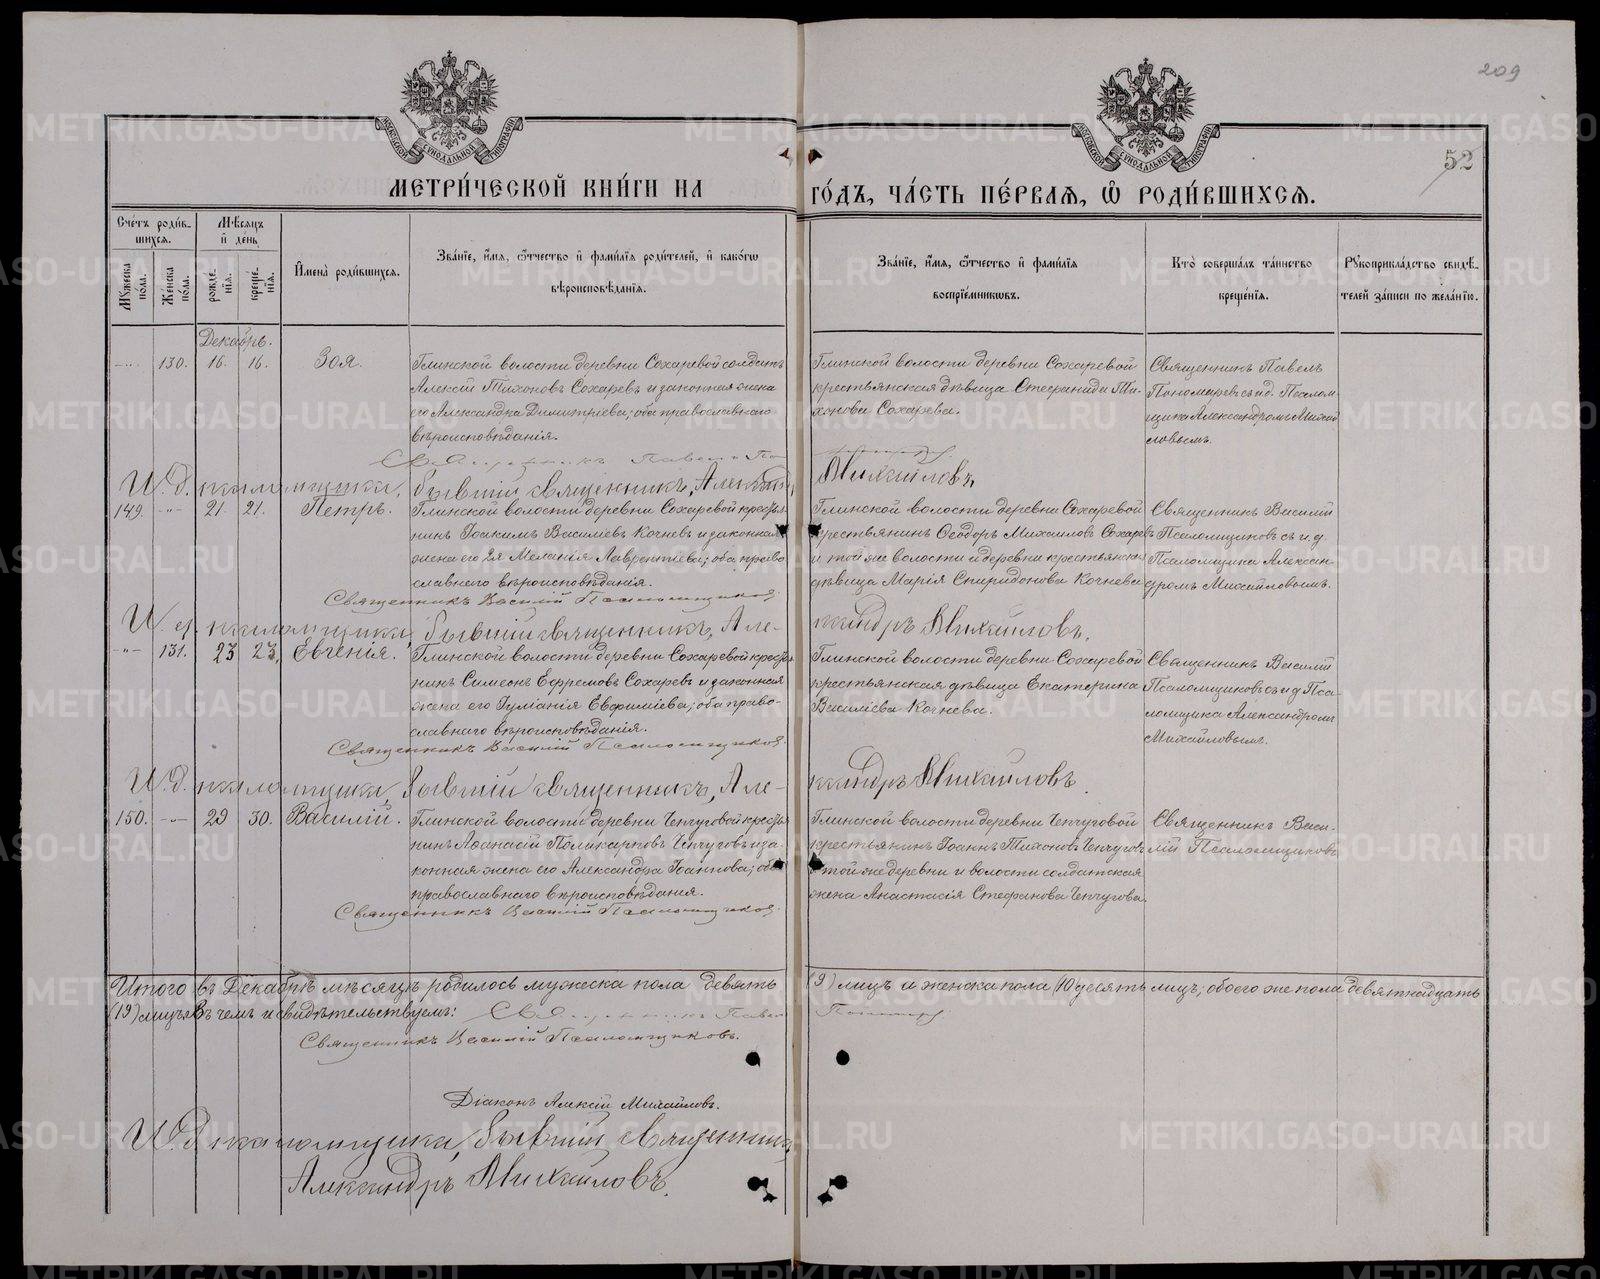 209
52
МОСКОВСКОЙ СѴНОДАЛЬНОЙ ТИПОГРАФІИ
МОСКОВСКОЙ СѴНОДАЛЬНОЙ ТИПОГРАФІИ
МЕТРИ́ЧЕСКОЙ КНИ́ГИ НА
ГО́ДЪ, ЧА́СТЬ ПЕ́РВАЯ, Ѡ РОДИ́ВШИХСЯ.
Сче́тъ роди́в-
шихся.
Мѣсяцъ
и де́нь
Му́жеска
по́ла.
Же́нска
по́ла.
рожде́-
нія.
креще́-
нія.
Имена̀ роди́вшихся.
Зва́ніе, и́мя, о́тчество и фами́лія роди́телей, и како́гѡ
вѣроисповѣ́данія.
Зва́ніе, и́мя, о́тчество и фами́лія
воспріе́мникѡвъ.
Кто̀ соверша́лъ та́инство
креще́нія.
Рукоприкла́дство свидѣ́-
телей за́писи по жела́нію.
Декабрь.
130. 16. 16. Зоя.
Глинской волости деревни Сохаревой солдатъ
Алексій Тихоновъ Сохаревъ и законная жена
его Александра Димитріева; оба православнаго
вѣроисповѣданія.
Глинской волости деревни Сохаревой
крестьянская дѣвица Стефанида Ти-
хонова Сохарева.
Священникъ Павелъ
Пономаревъ съ и.д. Псалом-
щика Александромъ Михай-
ловымъ.
Священникъ Павелъ По
И. д. псаломщика, бывшій священникъ, Александръ
Михайловъ.
149. -"- 21. 21. Петръ.
Глинской волости деревни Сохаревой крестья-
нинъ Іоакимъ Василіевъ Кочневъ и законная
жена его 2я Меланія Лаврентіева; оба право-
славнаго вѣроисповѣданія.
Глинской волости деревни Сохаревой
крестьянинъ Ѳеодоръ Михаиловъ Сохаревъ
и той же волости и деревни крестьянская
дѣвица Марія Спиридонова Кочнева
Священникъ Василій
Псаломщиковъ съ и.д.
Псаломщика Алексан-
дромъ Михайловымъ.
Священникъ Василій Псаломщиковъ.
И. д. псаломщика, бывшій священникъ, Але-
ксандръ Михайловъ.
-"- 131. 23 23. Евгенія.
Глинской волости деревни Сохаревой крестья-
нинъ Симеонъ Ефремовъ Сохаревъ и законная
жена его Гуманія Евфиміева; оба право-
славнаго вѣроисповѣданія.
Глинской волости деревни Сохаревой
крестьянская дѣвица Екатерина
Василіева Кочнева.
Священникъ Василій
Псаломщиковъ съ и д Пса-
ломщика Александромъ
Михайловымъ.
Священникъ Василій Псаломщиковъ.
И. д. псаломщика, бывшій священникъ, Але-
ксандръ Михайловъ.
150. -"- 29 30. Василій.
Глинской волости деревни Чепчуговой крестья-
нинъ Аѳанасій Поликарповъ Чепчуговъ и за-
конная жена его Александра Іоаннова; оба
православнаго вѣроисповѣданія.
Глинской волости деревни Чепчуговой
крестьянинъ Іоаннъ Тихоновъ Чепчуговъ
и той же деревни и волости солдатская
жена Анастасія Стефанова Чепчугова.
Священникъ Васи-
лій Псаломщиковъ
Священникъ Василій Псаломщиковъ.
Итого въ Декабрѣ мѣсяцѣ родилось мужеска пола девять
(9) лицъ а женска пола (10 десять лицъ; обоего же пола девятнадцать
(19) лицъ. Въ чемъ и свидѣтельствуемъ: Священникъ Павелъ
Пономаревъ
Священникъ Василій Псаломщиковъ.
Діаконъ Алексій Михайловъ.
И. д. псаломщика, бывшій священникъ,
Александръ Михайловъ.
METRIKI.GASO-URAL.RU